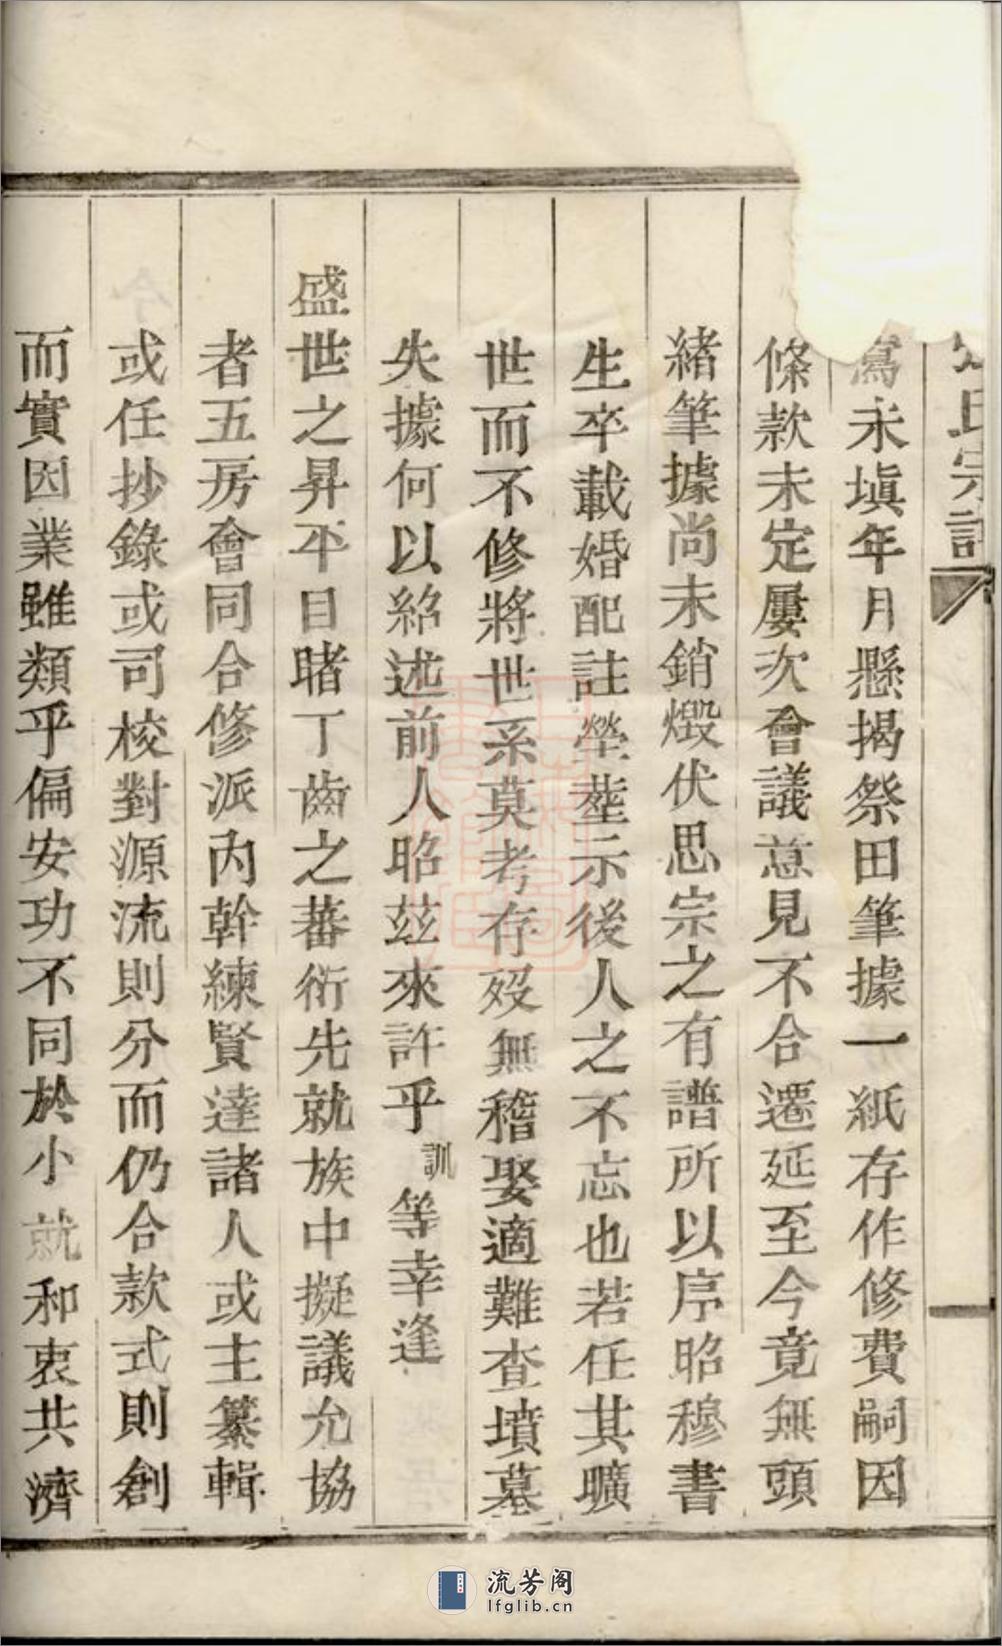 氏宗譜
寫未塡年月懸揭祭田筆據一紙存作修費嗣因
條款未定屢次會議意見不合遷延至今竟無頭
緒筆據尚未銷燬伏思宗之有譜所以序昭穆書
生卒載婚配註塋塟示後人之不忘也若任其曠
世而不修將世系莫考存歿無稽娶適難查墳墓
失據何以紹述前人昭玆來許乎訓等幸逢
盛世之昇平目睹丁齒之蕃衍先就族中擬議允協
者五房會同合修派內幹練賢達諸人或主纂輯
或任抄錄或司校對源流則分而仍合款式則創
而實因業雖類乎偏安功不同於小就和衷共濟
流芳阁
lfglib.cn